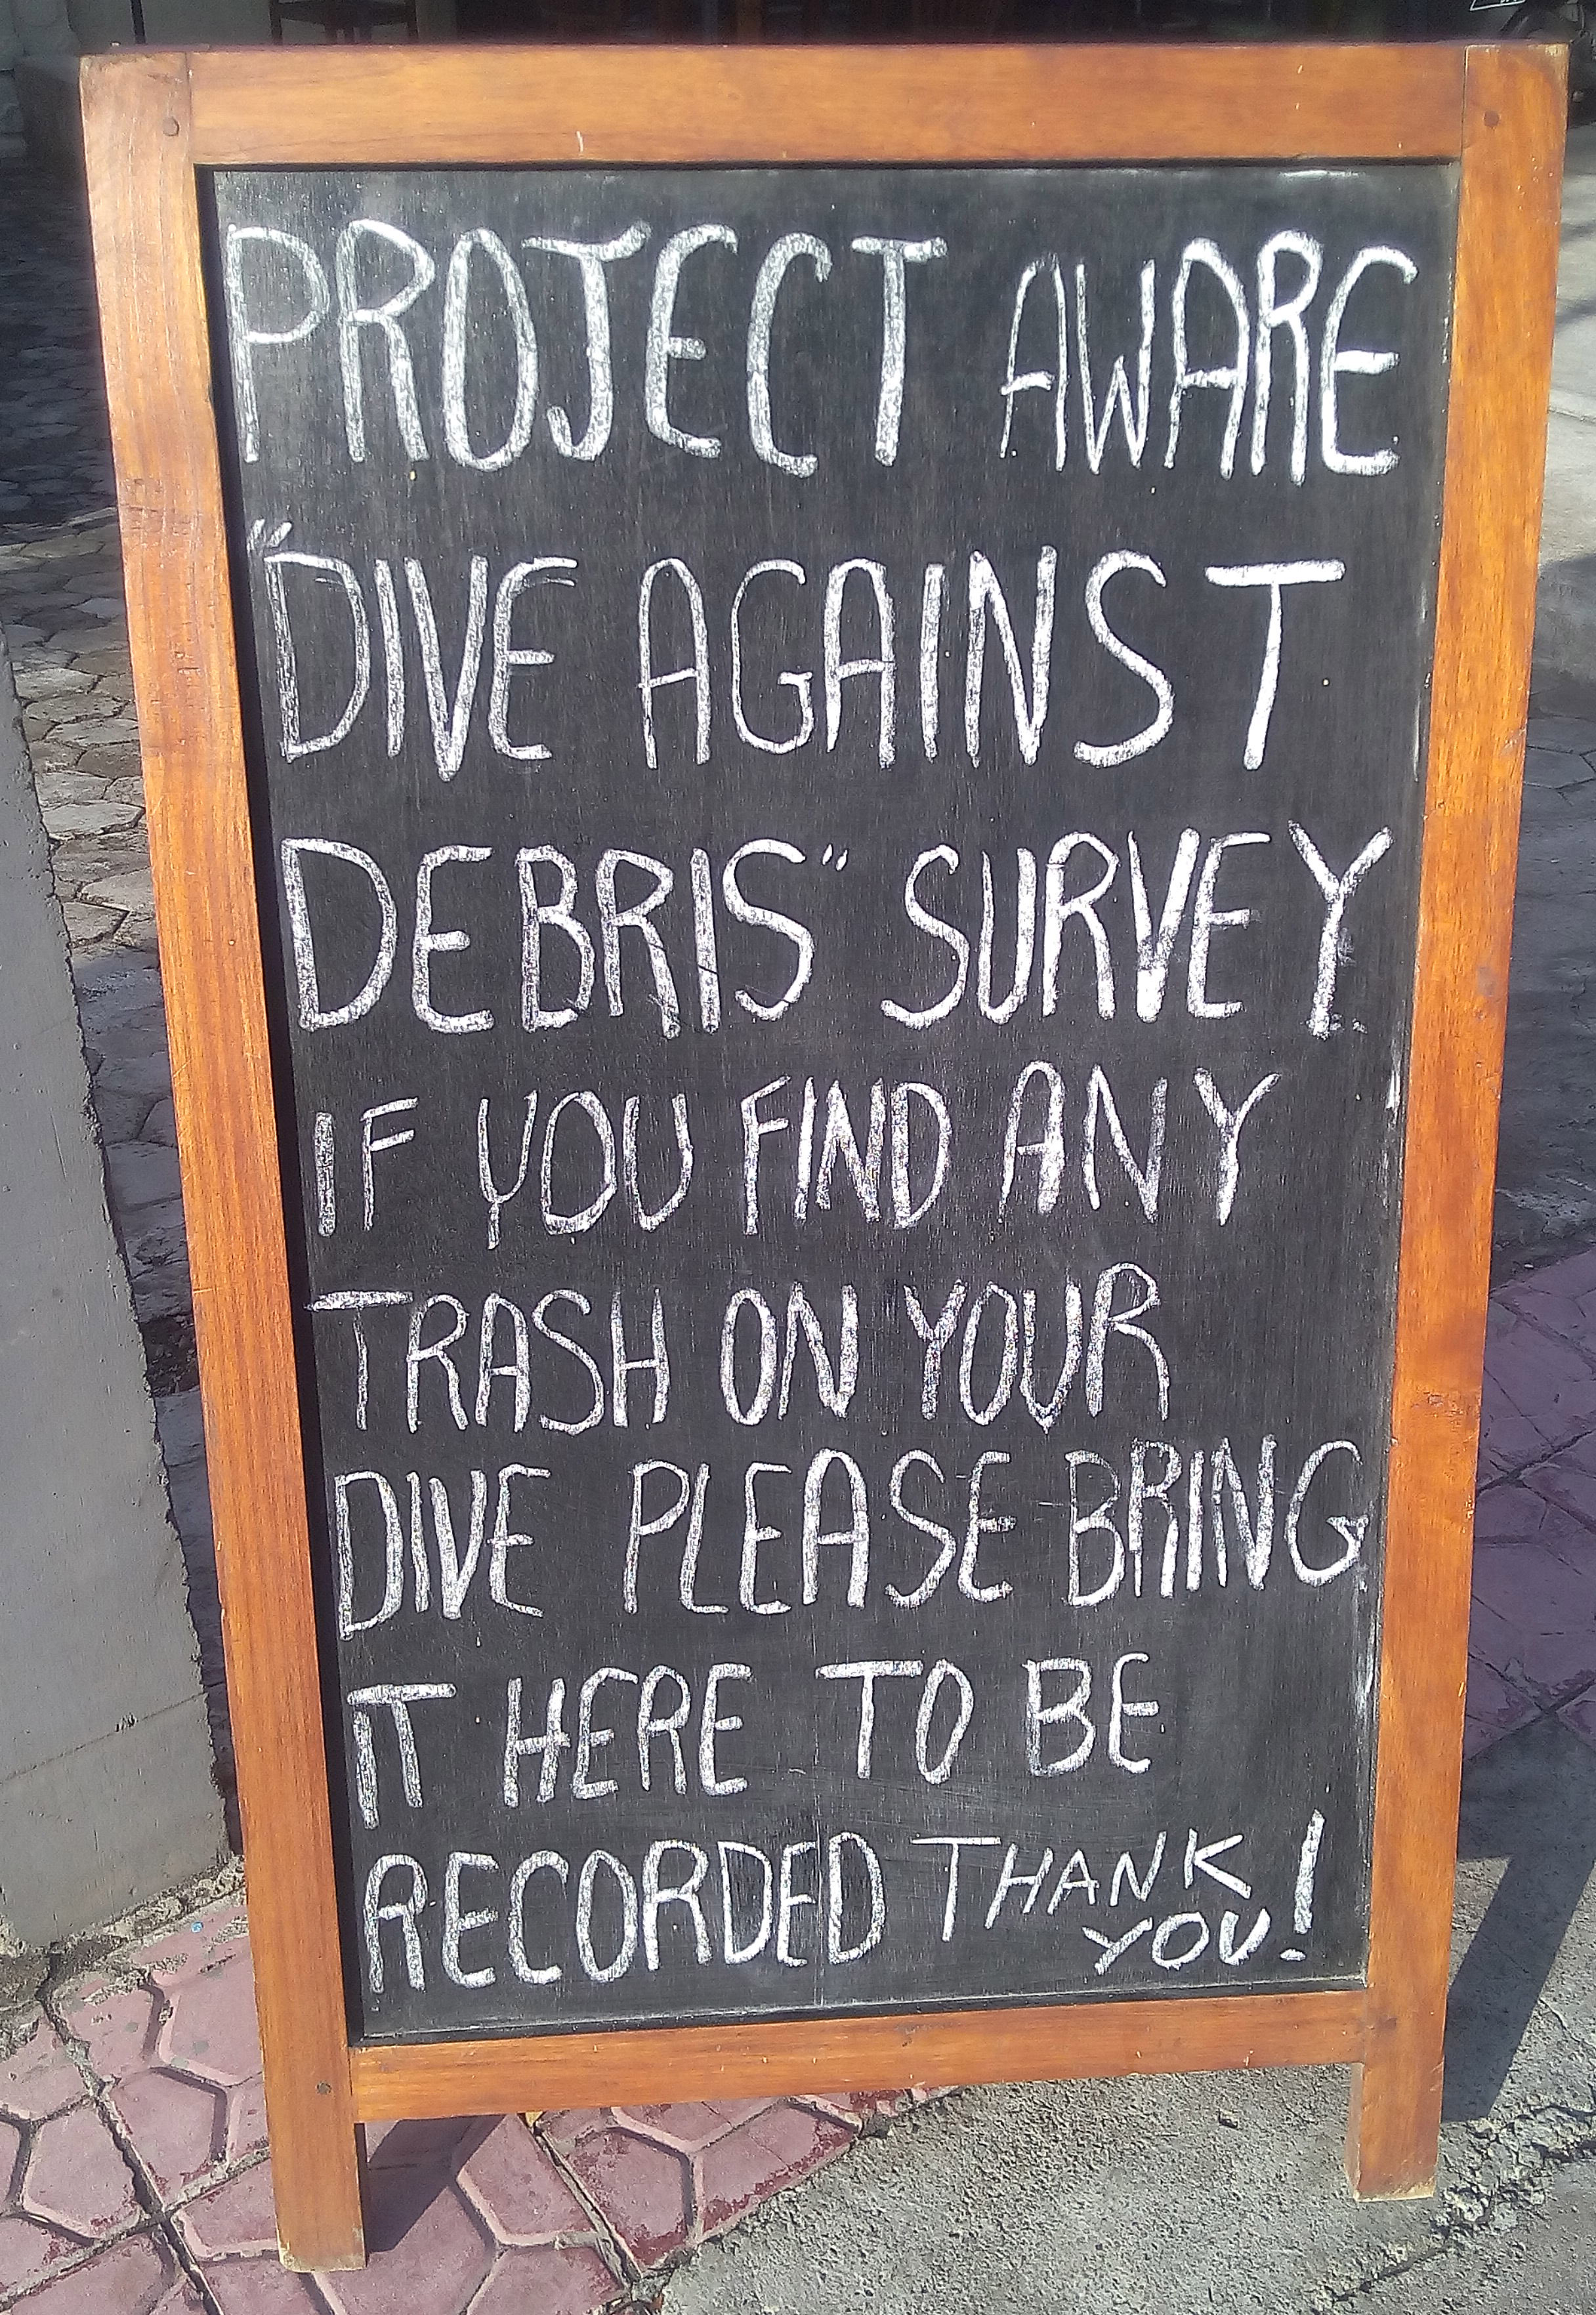 PROJECT AWARE
"DIVE AGAINST
DEBRIS" SURVEY
IF YOU FIND ANY
TRASH ON YOUR
DIVE PLEASE BRING
IT HERE TO BE
RECORDED THANK
YOU!